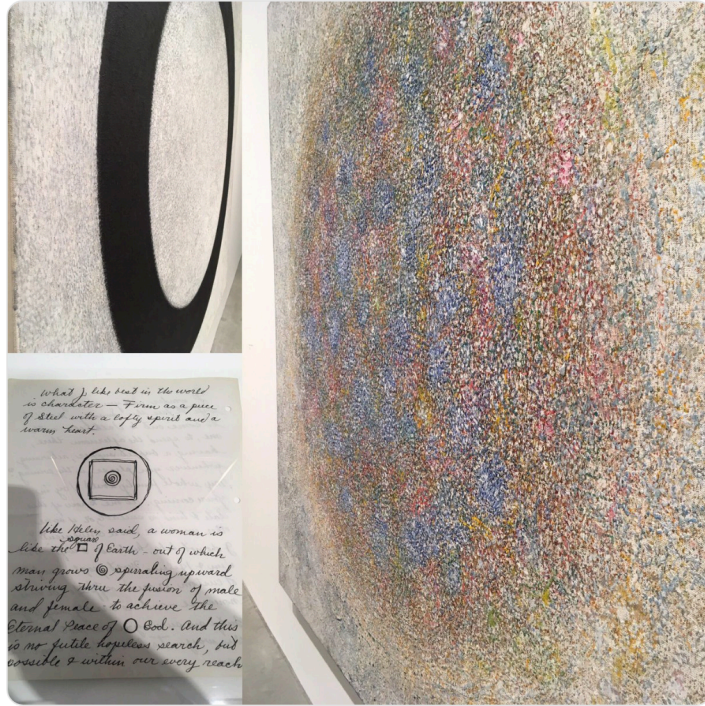 What I like best in the world
is character — Firm as a piece
of Steel with a lofty spirit and a
warm heart.
like Helen said, a woman is
square
like the □ of Earth - out of which
man grows spiraling upward
striving thru the fusion of male
and female to achieve the
Eternal Peace of ◯ God. And this
is no futile hopeless search, but
possible & within our every reach